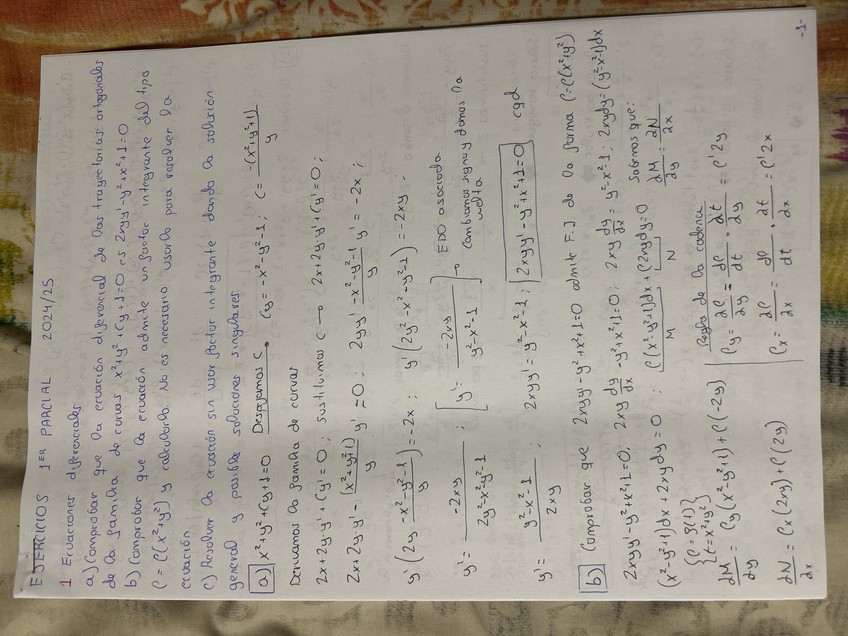 EJERCICIOS 1ER PARCIAL 2024/25
1 Ecuaciones diferenciales
a) Comprobar que la ecuación diferencial de las trayectorias ortogonales
de la familia de curvas x²+y²+Cy+1=0 es 2xyy'-y²+x²+1=0
b) Comprobar que la ecuación admite un factor integrante del tipo
ρ=ρ(x²+y²) y calcularlo. No es necesario usarlo para resolver la
ecuación
c) Resolver la ecuación sin usar factor integrante dando la solución
general y posible soluciones singulares
a) x²+y²+Cy+1=0 Despejamos C → Cy=-x²-y²-1; C= -(x²+y²+1)/y
Derivamos la familia de curvas
2x+2y·y'+Cy'=0; sustituimos C → 2x+2y·y'+Cy'=0;
2x+2yy'-(x²+y²+1)/y y'=0; 2yy' -x²-y²-1/y y'=-2x;
y'(2y -x²-y²-1/y)=-2x; y'(2y²-x²-y²-1)=-2xy;
y'= -2xy/2y²-x²-y²-1; [y'= -2xy/y²-x²-1] → EDO asociada
Cambiamos signo y damos la
vuelta
y'= y²-x²-1/2xy; 2xyy'=y²-x²-1; 2xyy'-y²+x²+1=0 cqd
b) Comprobar que 2xyy'-y²+x²+1=0 admite F.I de la forma ρ=ρ(x²+y²)
2xyy'-y²+x²+1=0; 2xy dy/dx -y²+x²+1=0; 2xy dy/dx = y²-x²-1; 2xydy=(y²-x²-1)dx
(x²-y²+1)dx+2xydy=0; ρ(x²-y²+1)dx+ρ2xydy=0
M N
Sabemos que:
∂M/∂y = ∂N/∂x
{ρ=ρ(t)
{t=x²+y²}
∂M/∂y = ρy(x²-y²+1)+ρ(-2y)
∂N/∂x = ρx(2xy)+ρ(2y)
Regla de la cadena
ρy= ∂ρ/∂y = dρ/dt · ∂t/∂y = ρ'2y
ρx= ∂ρ/∂x = dρ/dt · ∂t/∂x = ρ'2x
-1-